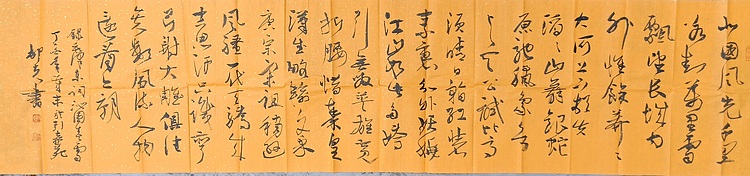 北国风光千里
冰封万里雪
飘望长城内
外惟馀莽々
大河上下顿失
滔々山舞银蛇
原驰腊象欲与
天公试比高
须晴日看红装
素裹分外妖娆
江山如此多娇
引无数英雄竞
折腰惜秦皇
汉武略输文采
唐宗宋祖稍逊
风骚一代天骄成
吉思汗只识弯
弓射大雕俱往
矣数风流人物
还看今朝
录毛泽东词沁园春雪